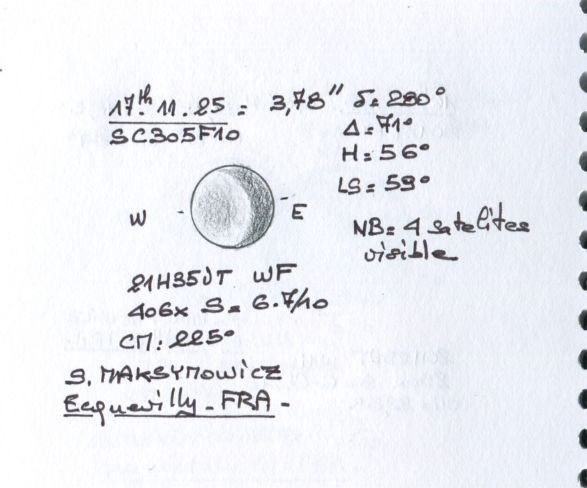 17th.11.25 = 3,78" δ= 280°
SC305F10
Δ=71°
H=56°
LS=59°
W E
NB= 4 satelites
visible
21H35UT WF
406x S= 6.7/10
CM: 225°
S. MAKSYMOWICZ
Ecquevilly - FRA -